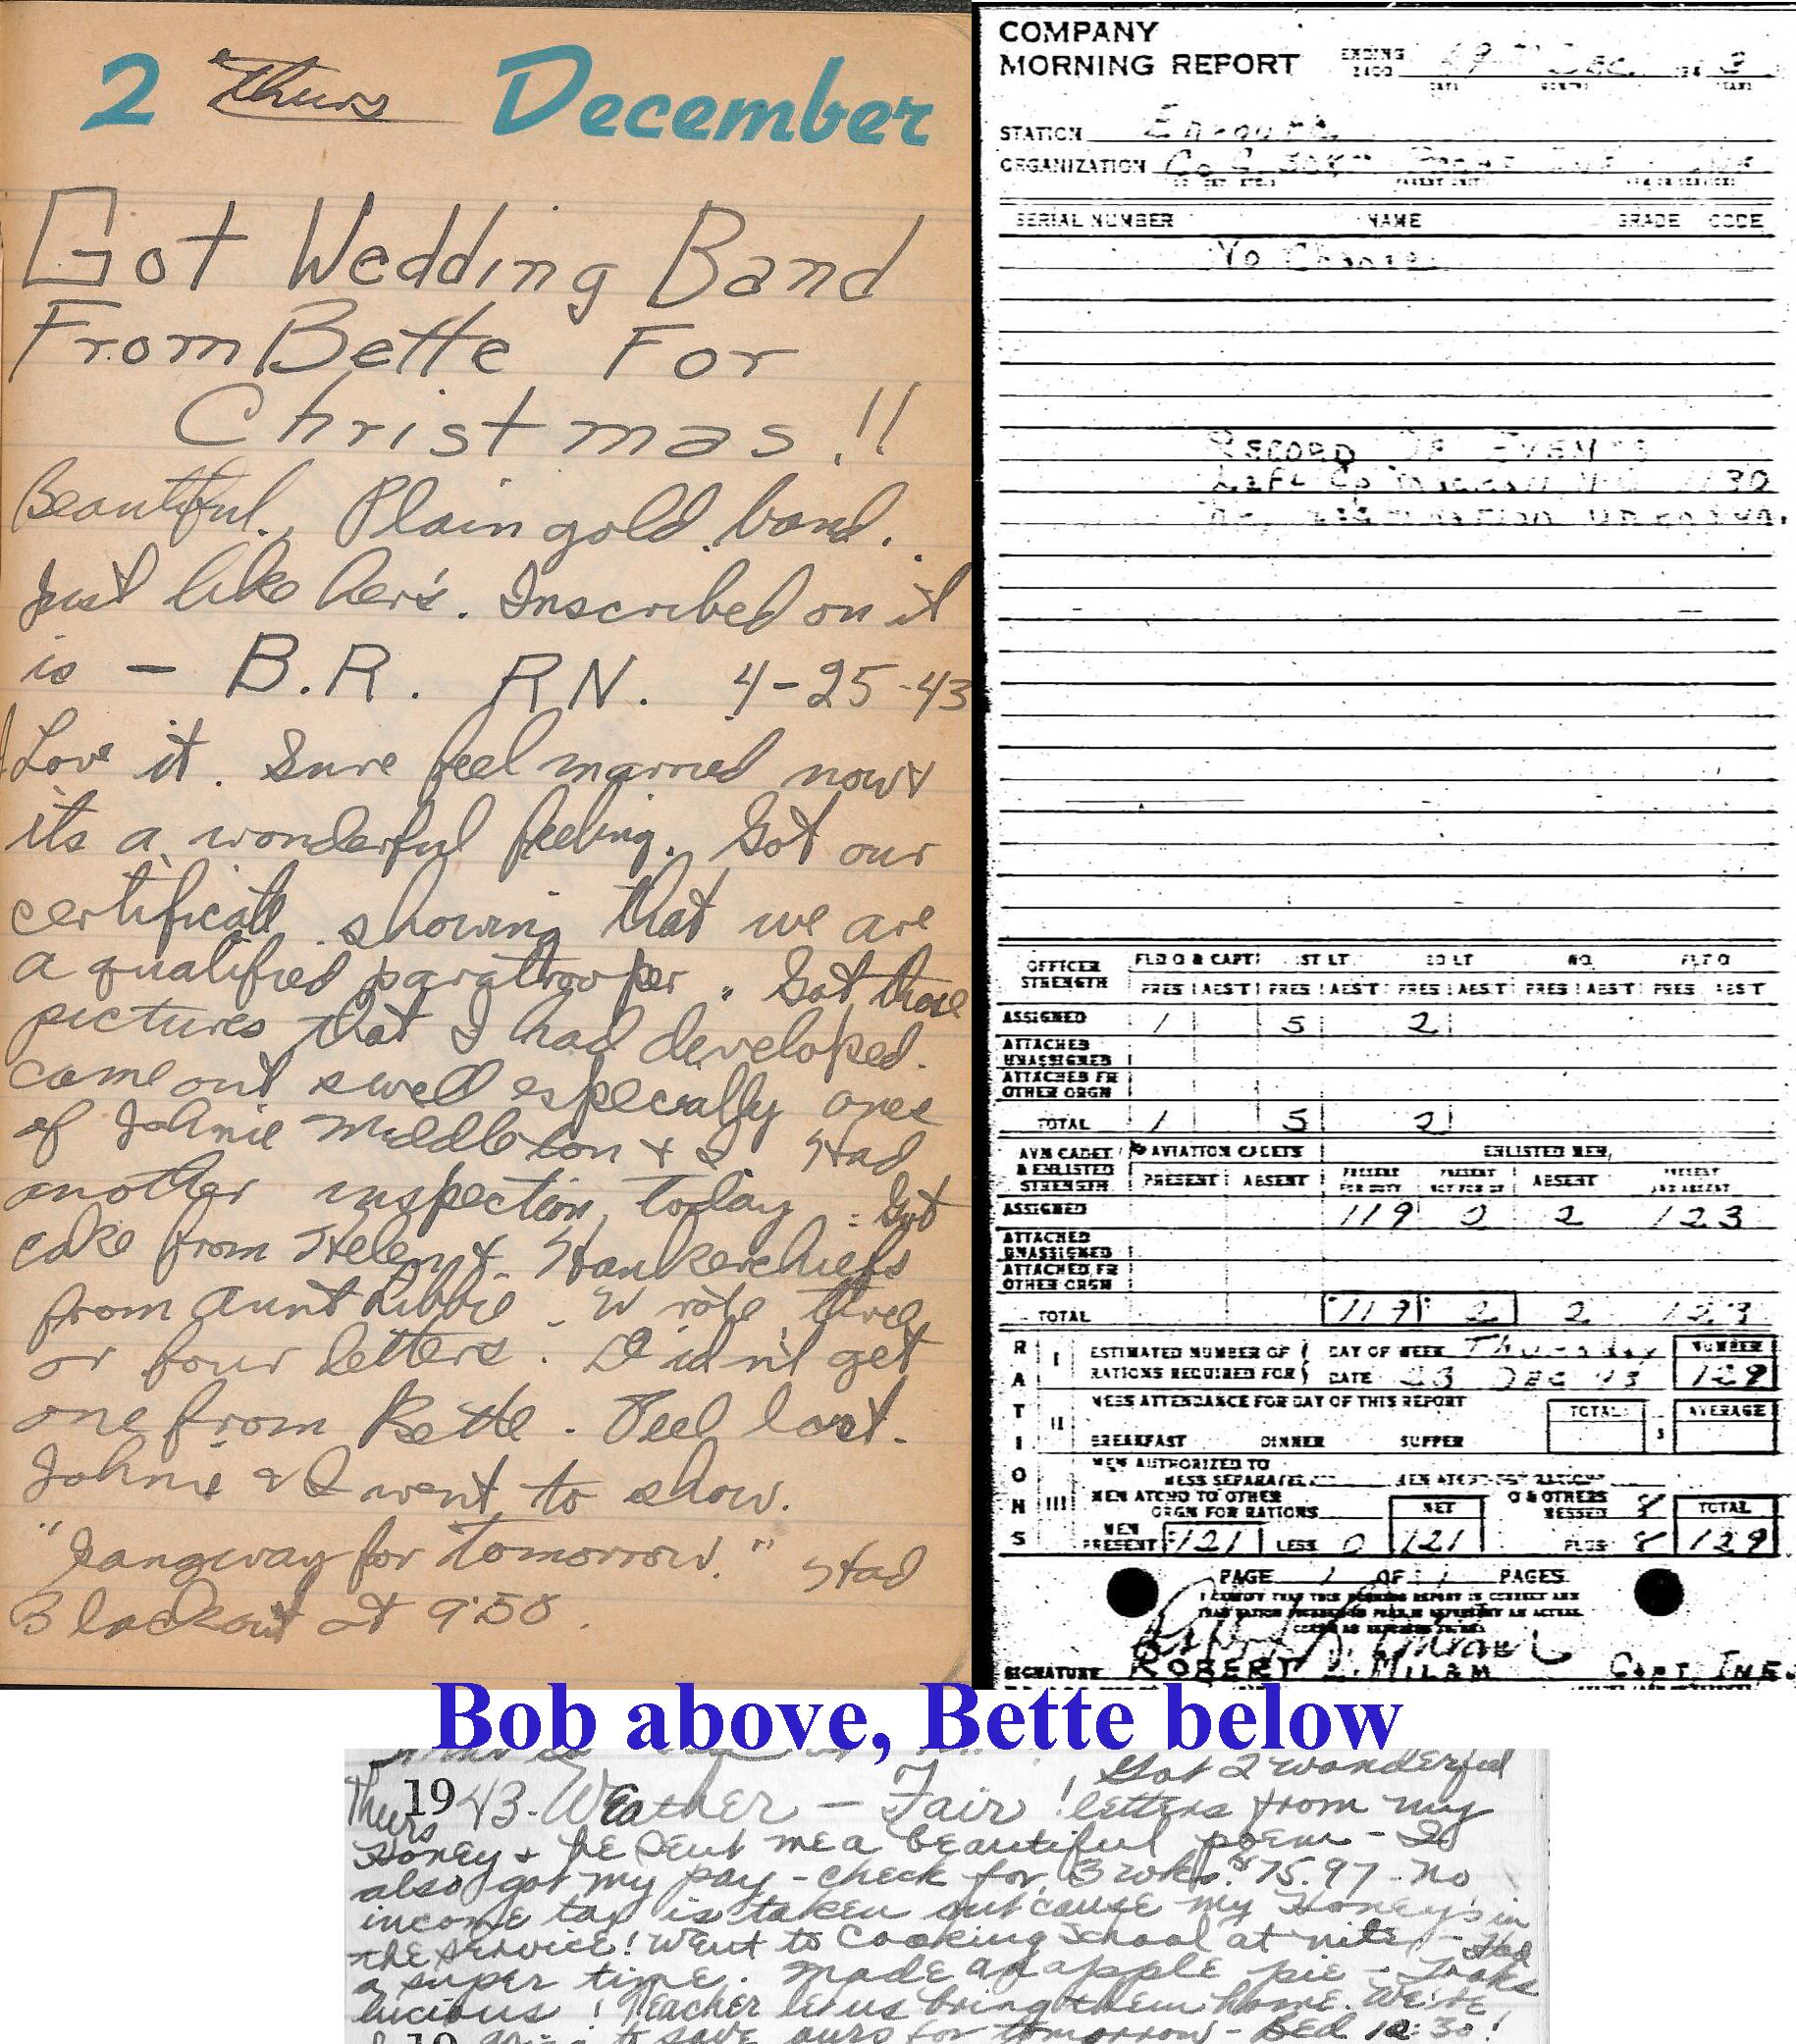 2 Thurs December
Got Wedding Band
From Bette For
Christmas!!
Beautiful. Plain gold band.
Just like her's. Inscribed on it
is - B.R. RN. 4-25-43
Love it. Sure feel married now &
its a wonderful feeling. Got our
certificate showing that we are
a qualified paratrooper. Got those
pictures that I had developed.
came out swell especially ones
of Johnie Middleton & I. Had
another inspection today. Got
cake from Helen &. Hankerchiefs
from Aunt Libbie. Wrote three
or four letters. Didn't get
one from Bette. Feel lost.
Johnie & I went to show.
"Gangway for tomorrow." Had
Blackout at 9:50.
COMPANY
MORNING REPORT ENDING 2400
DAY MONTH YEAR
STATION Enroute
ORGANIZATION Co G
SERIAL NUMBER NAME GRADE CODE
No Change
RECORD OF EVENTS
Left Cp 30
OFFICER STRENGTH FLD O & CAPT 1ST LT 2D LT WO FLT O
PRES ABSENT PRES ABSENT PRES ABSENT PRES ABSENT PRES ABSENT
ASSIGNED 1 5 2
ATTACHED UNASSIGNED
ATTACHED FR OTHER ORGN
TOTAL 1 5 2
AVN CADET & ENLISTED STRENGTH AVIATION CADETS ENLISTED MEN
PRESENT ABSENT PRESENT FOR DUTY PRESENT NOT FOR DY ABSENT PRESENT AND ABSENT
ASSIGNED 119 2 2 123
ATTACHED UNASSIGNED
ATTACHED FR OTHER ORGN
TOTAL 119 2 2 123
RATIONS
I ESTIMATED NUMBER OF RATIONS REQUIRED FOR DAY OF WEEK Thursday NUMBER
DATE 23 DEC 43 129
II MESS ATTENDANCE FOR DAY OF THIS REPORT TOTAL AVERAGE
BREAKFAST DINNER SUPPER 3
III MEN AUTHORIZED TO MESS SEPARATELY MEN ATCHD FOR RATIONS
MEN ATCHD TO OTHER ORGN FOR RATIONS NET O & OTHERS MESSED 8 TOTAL
MEN PRESENT 121 LESS 0 121 PLUS 8 129
PAGE 1 OF 1 PAGES
I CERTIFY THAT THIS MORNING REPORT IS CORRECT AND
SIGNATURE ROBERT L. MILAM CAPT. INF.
Bob above, Bette below
Thurs 1943 - Weather - Fair! Got 2 wonderful
letters from my
Honey & he sent me a beautiful poem - I
also got my pay-check for 3 wks. $75.97. no
income tax is taken out cause my Honey's in
the service! Went to Cooking School at nite - Had
a super time. Made an apple pie - Looks
lucious! Teacher let us bring them home. We're
to save ours for tomorrow - Bed 12:30!
19